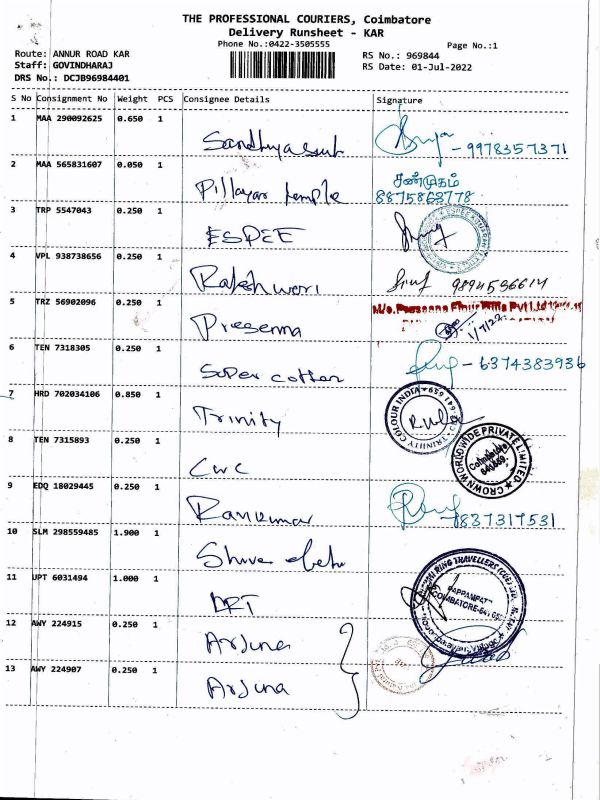 THE PROFESSIONAL COURIERS, Coimbatore
Delivery Runsheet - KAR
Phone No.:0422-3505555
Page No.:1
Route: ANNUR ROAD KAR
RS No.: 969844
Staff: GOVINDHARAJ
RS Date: 01-Jul-2022
DRS No.: DCJB96984401
S No Consignment No Weight PCS Consignee Details Signature
1 MAA 290092625 0.650 1 - 9978357371
2 MAA 565831607 0.050 1 Pillayar temple சண்முகம்
8875863778
3 TRP 5547043 0.250 1 ESPEE
4 VPL 938738656 0.250 1 Rakshwori 9894596614
5 TRZ 56902096 0.250 1 Presenna 1/7/22
6 TEN 7318305 0.250 1 Super cotton - 6374383936
7 HRD 702034106 0.850 1 Trinity TRINITY COLOUR INDIA
8 TEN 7315893 0.250 1 CWC CROWN WORLDWIDE PRIVATE LIMITED
Coimbatore
9 EDQ 18029445 0.250 1 Ramkumar 8837317531
10 SLM 298559485 1.900 1
11 UPT 6031494 1.000 1 DRT
COIMBATORE
12 AWY 224915 0.250 1 Arjuna
13 AWY 224907 0.250 1 Arjuna